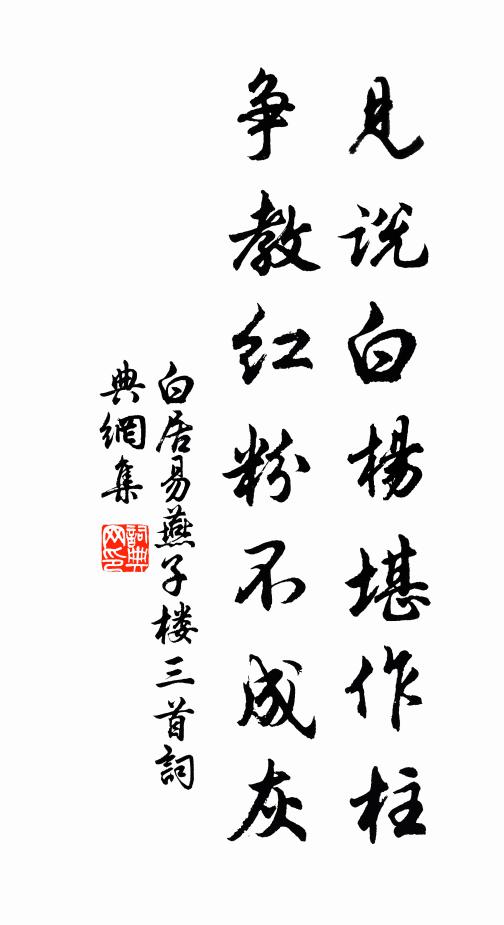 见说白杨堪作柱
争教红粉不成灰
白居易燕子楼三首詞
典網集
詞典
网印